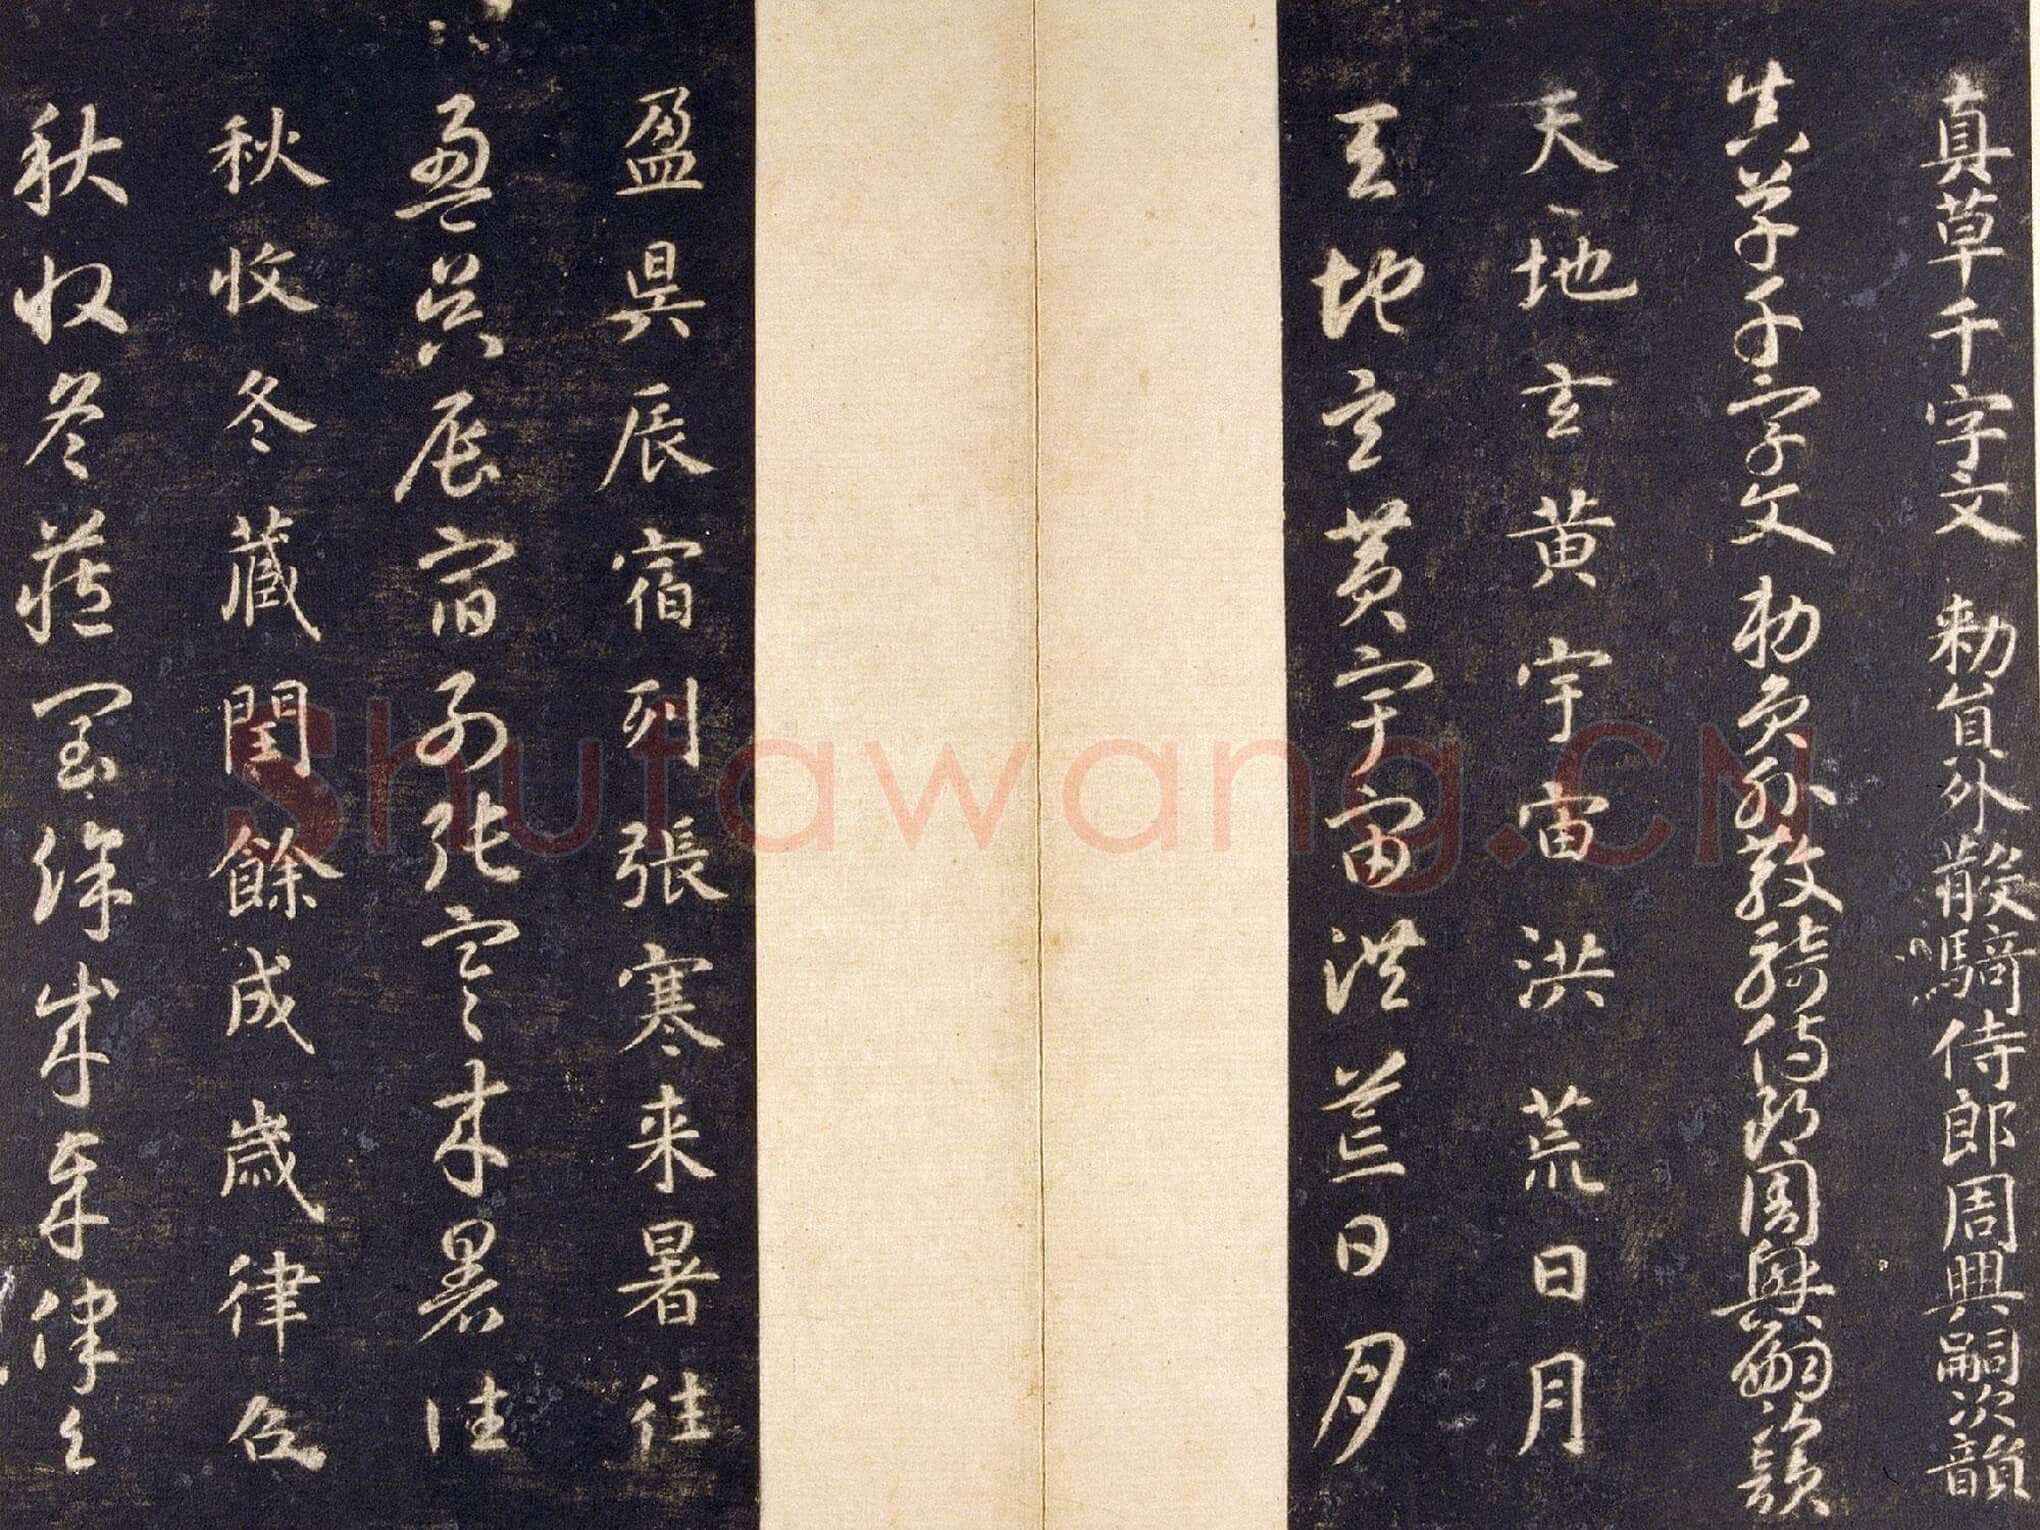 真草千字文 勅員外散騎侍郎周興嗣次韻
真草千字文 勅員外散騎侍郎周興嗣次韻
天地玄黄宇宙洪荒日月
天地玄黄宇宙洪荒日月
盈昃辰宿列張寒来暑往
盈昃辰宿列張寒来暑往
秋收冬蔵閏餘成歳律召
秋收冬蔵閏餘成歳律召
Shufawang.CN